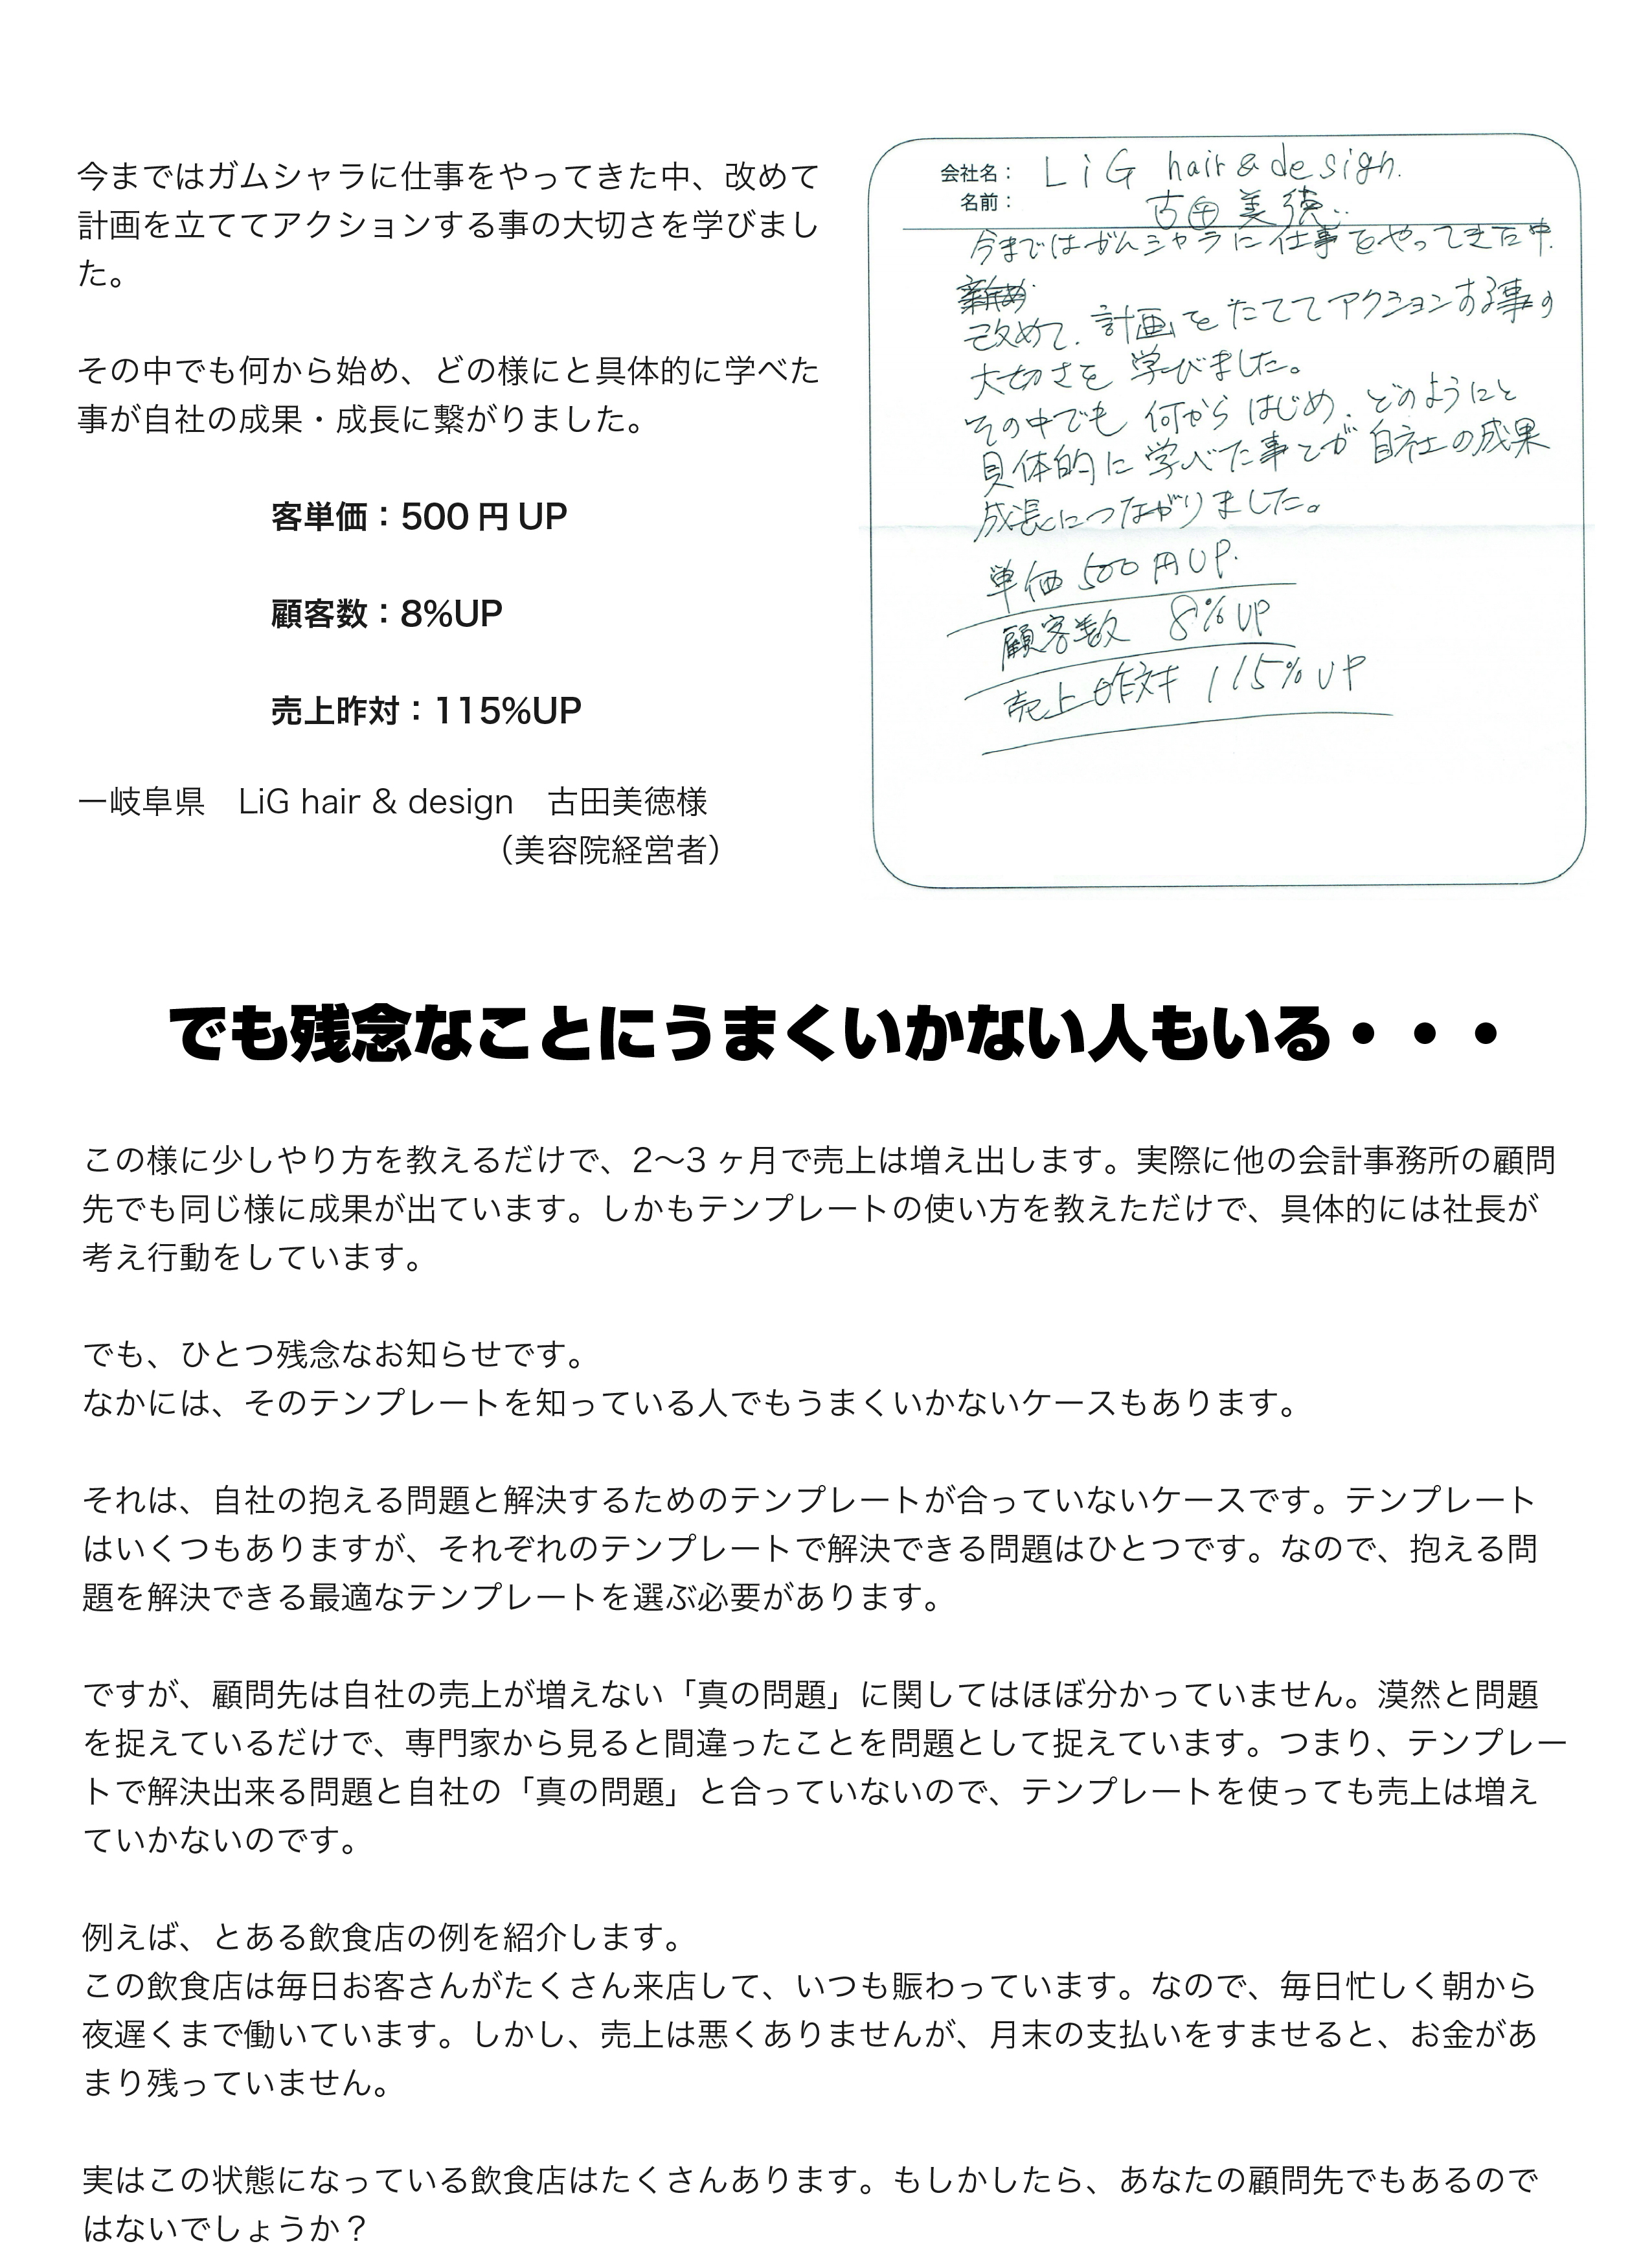 今まではガムシャラに仕事をやってきた中、改めて
計画を立ててアクションする事の大切さを学びまし
た。
その中でも何から始め、どの様にと具体的に学べた
事が自社の成果・成長に繋がりました。
客単価：500円UP
顧客数：8%UP
売上昨対：115%UP
ー岐阜県　LiG hair & design　古田美徳様
（美容院経営者）
会社名：LiG hair & design.
名前：古田美徳
今まではがんシャラに仕事をやってきた中.
改めて.計画をたててアクションする事の
大切さを学びました。
その中でも何からはじめ.どのようにと
具体的に学べた事とが自社の成果
成長につながりました。
単価500円UP.
顧客数 8%UP
売上昨対 115%UP
でも残念なことにうまくいかない人もいる・・・
この様に少しやり方を教えるだけで、2〜3ヶ月で売上は増え出します。実際に他の会計事務所の顧問
先でも同じ様に成果が出ています。しかもテンプレートの使い方を教えただけで、具体的には社長が
考え行動をしています。
でも、ひとつ残念なお知らせです。
なかには、そのテンプレートを知っている人でもうまくいかないケースもあります。
それは、自社の抱える問題と解決するためのテンプレートが合っていないケースです。テンプレート
はいくつもありますが、それぞれのテンプレートで解決できる問題はひとつです。なので、抱える問
題を解決できる最適なテンプレートを選ぶ必要があります。
ですが、顧問先は自社の売上が増えない「真の問題」に関してはほぼ分かっていません。漠然と問題
を捉えているだけで、専門家から見ると間違ったことを問題として捉えています。つまり、テンプレー
トで解決出来る問題と自社の「真の問題」と合っていないので、テンプレートを使っても売上は増え
ていかないのです。
例えば、とある飲食店の例を紹介します。
この飲食店は毎日お客さんがたくさん来店して、いつも賑わっています。なので、毎日忙しく朝から
夜遅くまで働いています。しかし、売上は悪くありませんが、月末の支払いをすませると、お金があ
まり残っていません。
実はこの状態になっている飲食店はたくさんあります。もしかしたら、あなたの顧問先でもあるので
はないでしょうか？